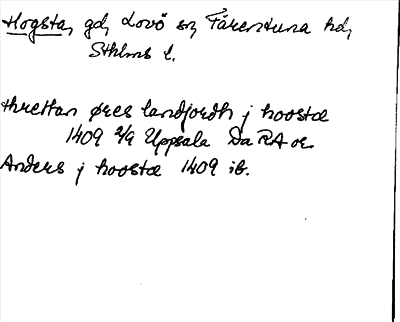 Hogsta, gd, Lovö sn, Färentuna hd,
Sthlms l.
threttan øres landjordh j hoostæ
1409 2/9 Uppsala Da RA or.
Anders j hoostæ 1409 ib.